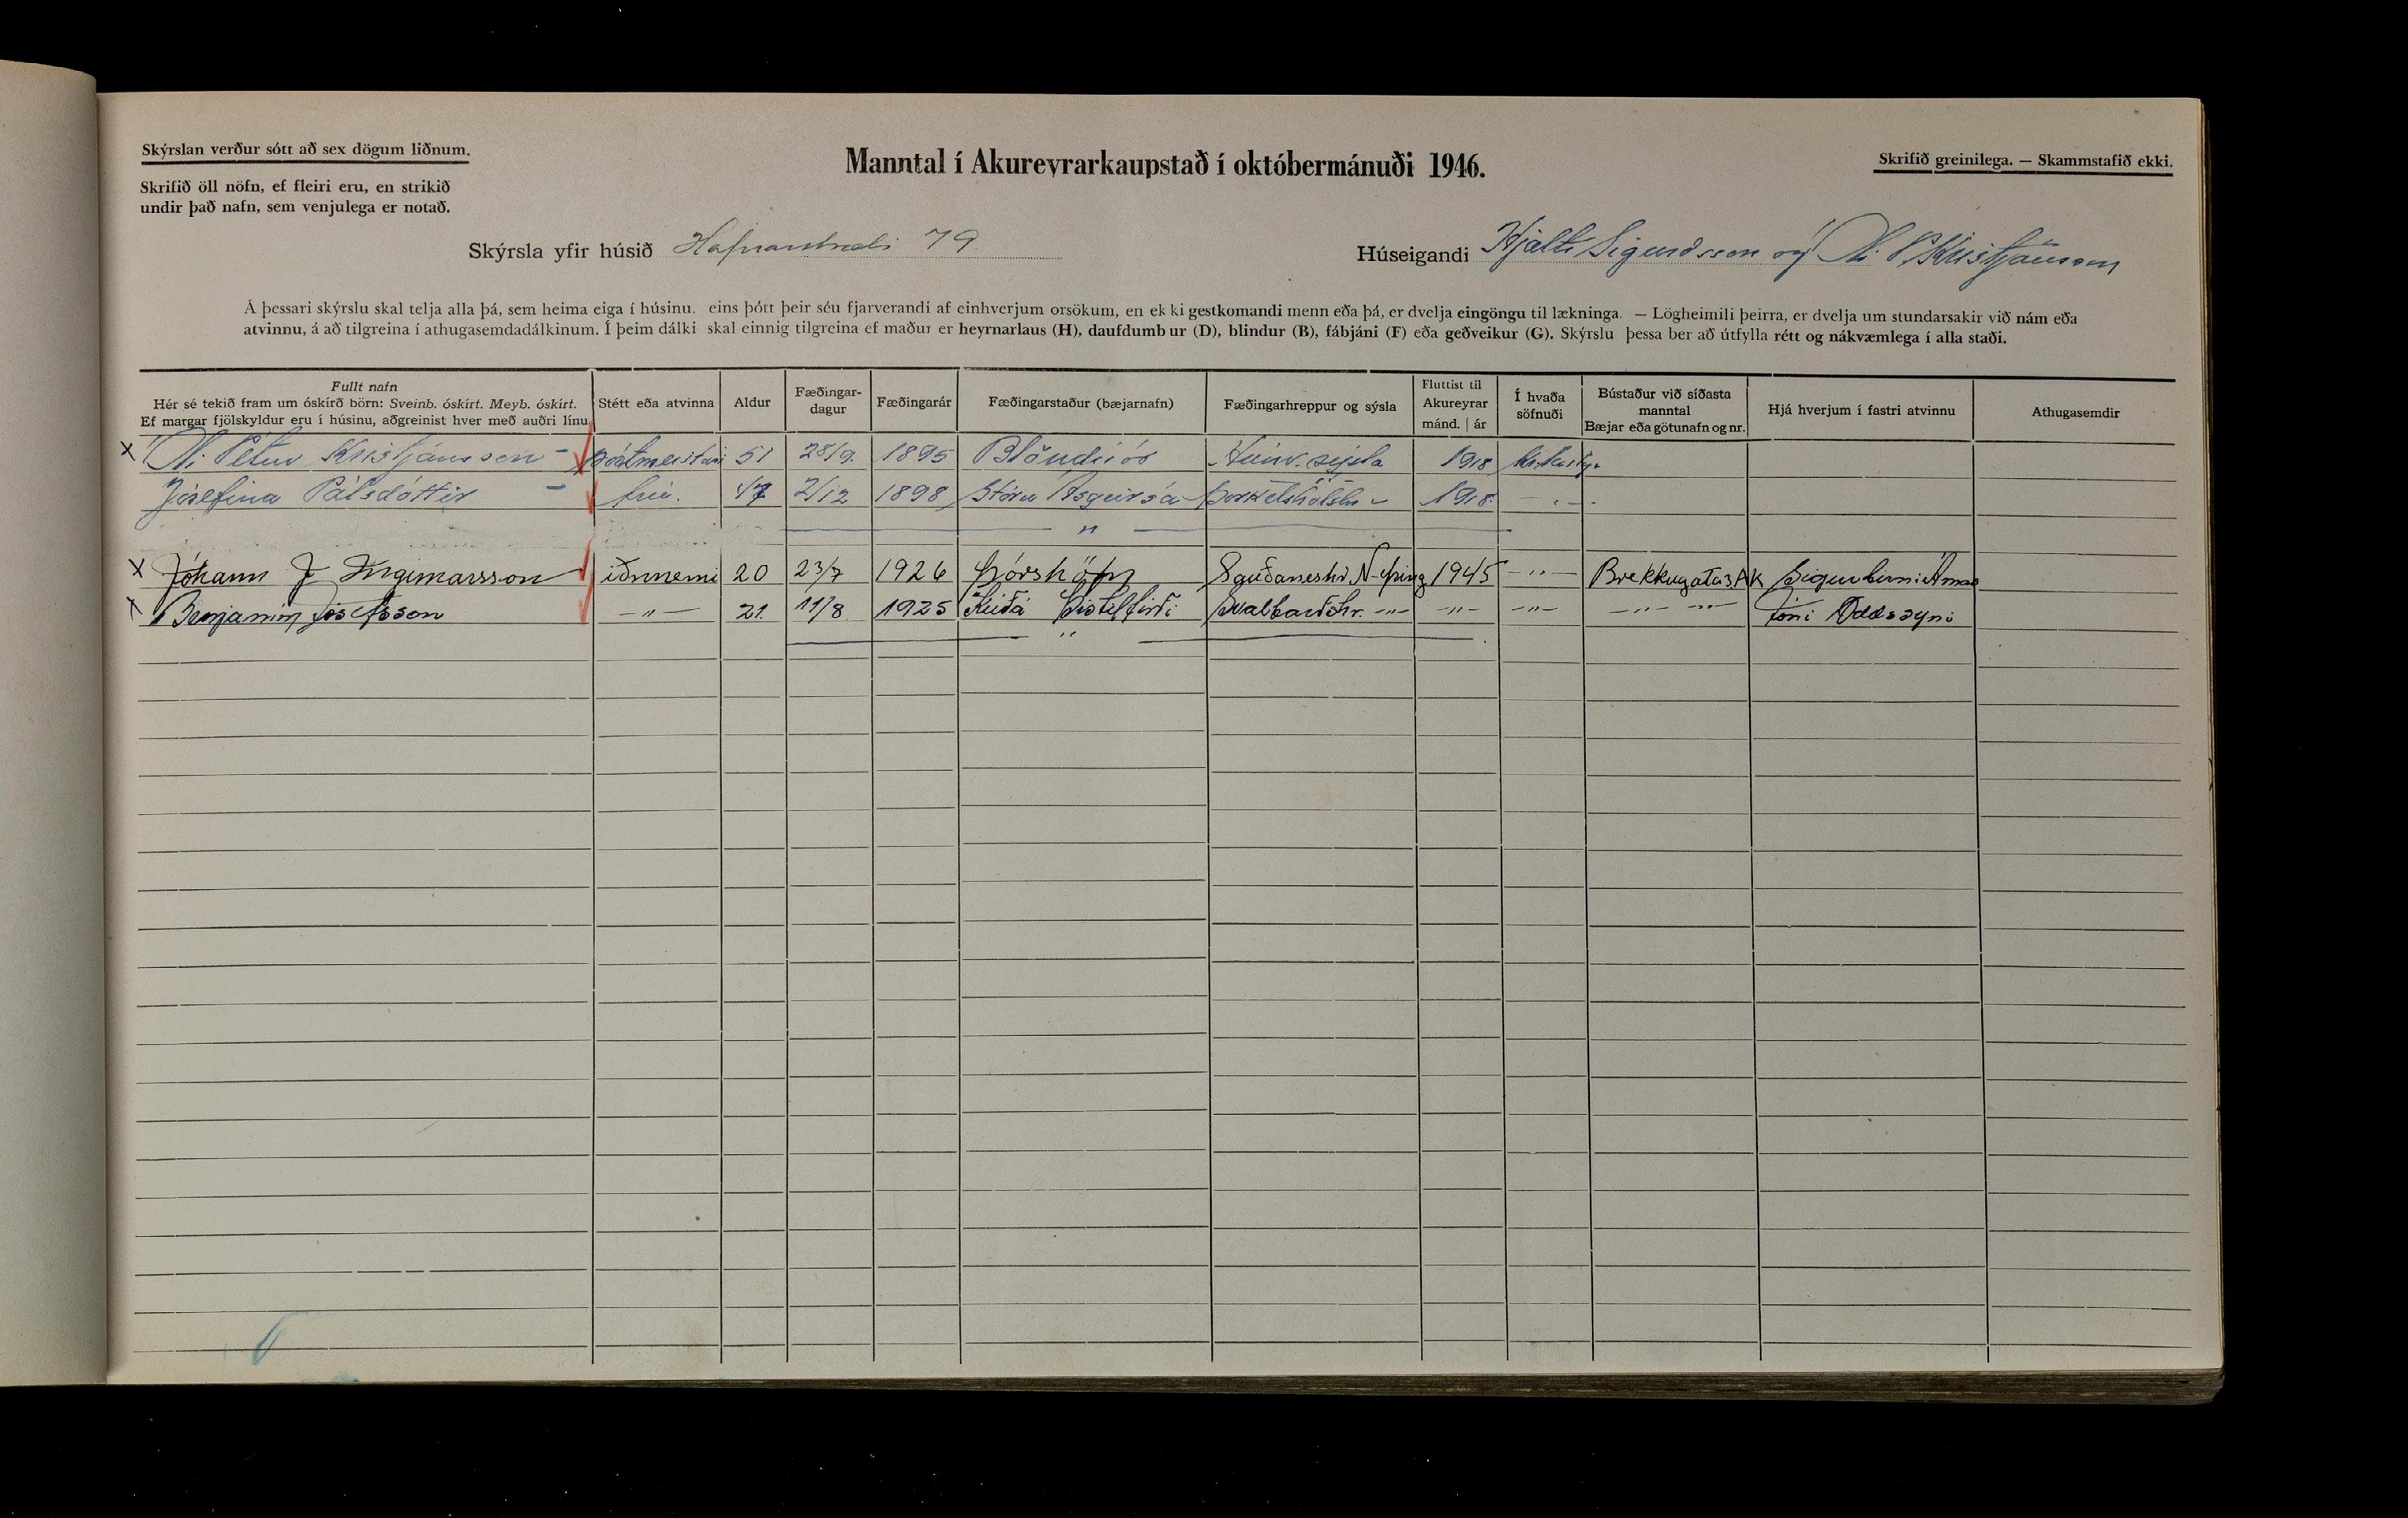 Skýrslan verður sótt að sex dögum liðnum.
Manntal í Akureyrarkaupstað í októbermánuði 1946.
Skrifið greinilega. — Skammstafið ekki.
Skrifið öll nöfn, ef fleiri eru, en strikið
undir það nafn, sem venjulega er notað.
Skýrsla yfir húsið Hafnarstræti 79
Húseigandi Hjalti Sigurdsson og P. Kristjánsson
Á þessari skýrslu skal telja alla þá, sem heima eiga í húsinu, eins þótt þeir séu fjarverandi af einhverjum orsökum, en ekki gestkomandi menn eða þá, er dvelja eingöngu til lækninga. — Lögheimili þeirra, er dvelja um stundarsakir við nám eða
atvinnu, á að tilgreina í athugasemdadálkinum. Í þeim dálki skal einnig tilgreina ef maður er heyrnarlaus (H), daufdumbur (D), blindur (B), fábjáni (F) eða geðveikur (G). Skýrslu þessa ber að útfylla rétt og nákvæmlega í alla staði.
Fullt nafn
Hér sé tekið fram um óskírð börn: Sveinb. óskírt. Meyb. óskírt.
Ef margar fjölskyldur eru í húsinu, aðgreinist hver með auðri línu.
Stétt eða atvinna
Aldur
Fæðingar-
dagur
Fæðingarár
Fæðingarstaður (bæjarnafn)
Fæðingarhreppur og sýsla
Fluttist til
Akureyrar
mánd. | ár
Í hvaða
söfnuði
Bústaður við síðasta
manntal
Bæjar eða götunafn og nr.
Hjá hverjum í fastri atvinnu
Athugasemdir
x Pétur Kristjánsson - 51 28/9. 1895 Blönduós Húnv. sýsla 1918
Jósefina Pálsdóttir - frú. 47 2/12 1898 Stóru Ásgeirsá 1918. — . —
— " —
x Jóhann J Ingimarsson iðnnemi 20 23/7 1926 Þórshöfn Sauðaneshr. N-Þing 1945 —"— Brekkugata 3 Ak Sigurbirni Árnas
x Benjamín Jósefsson —"— 21. 11/8 1925 Þistilfirði Svalbarðshr. —"— —"— —"— —"— —"— Oddssyni
— " —